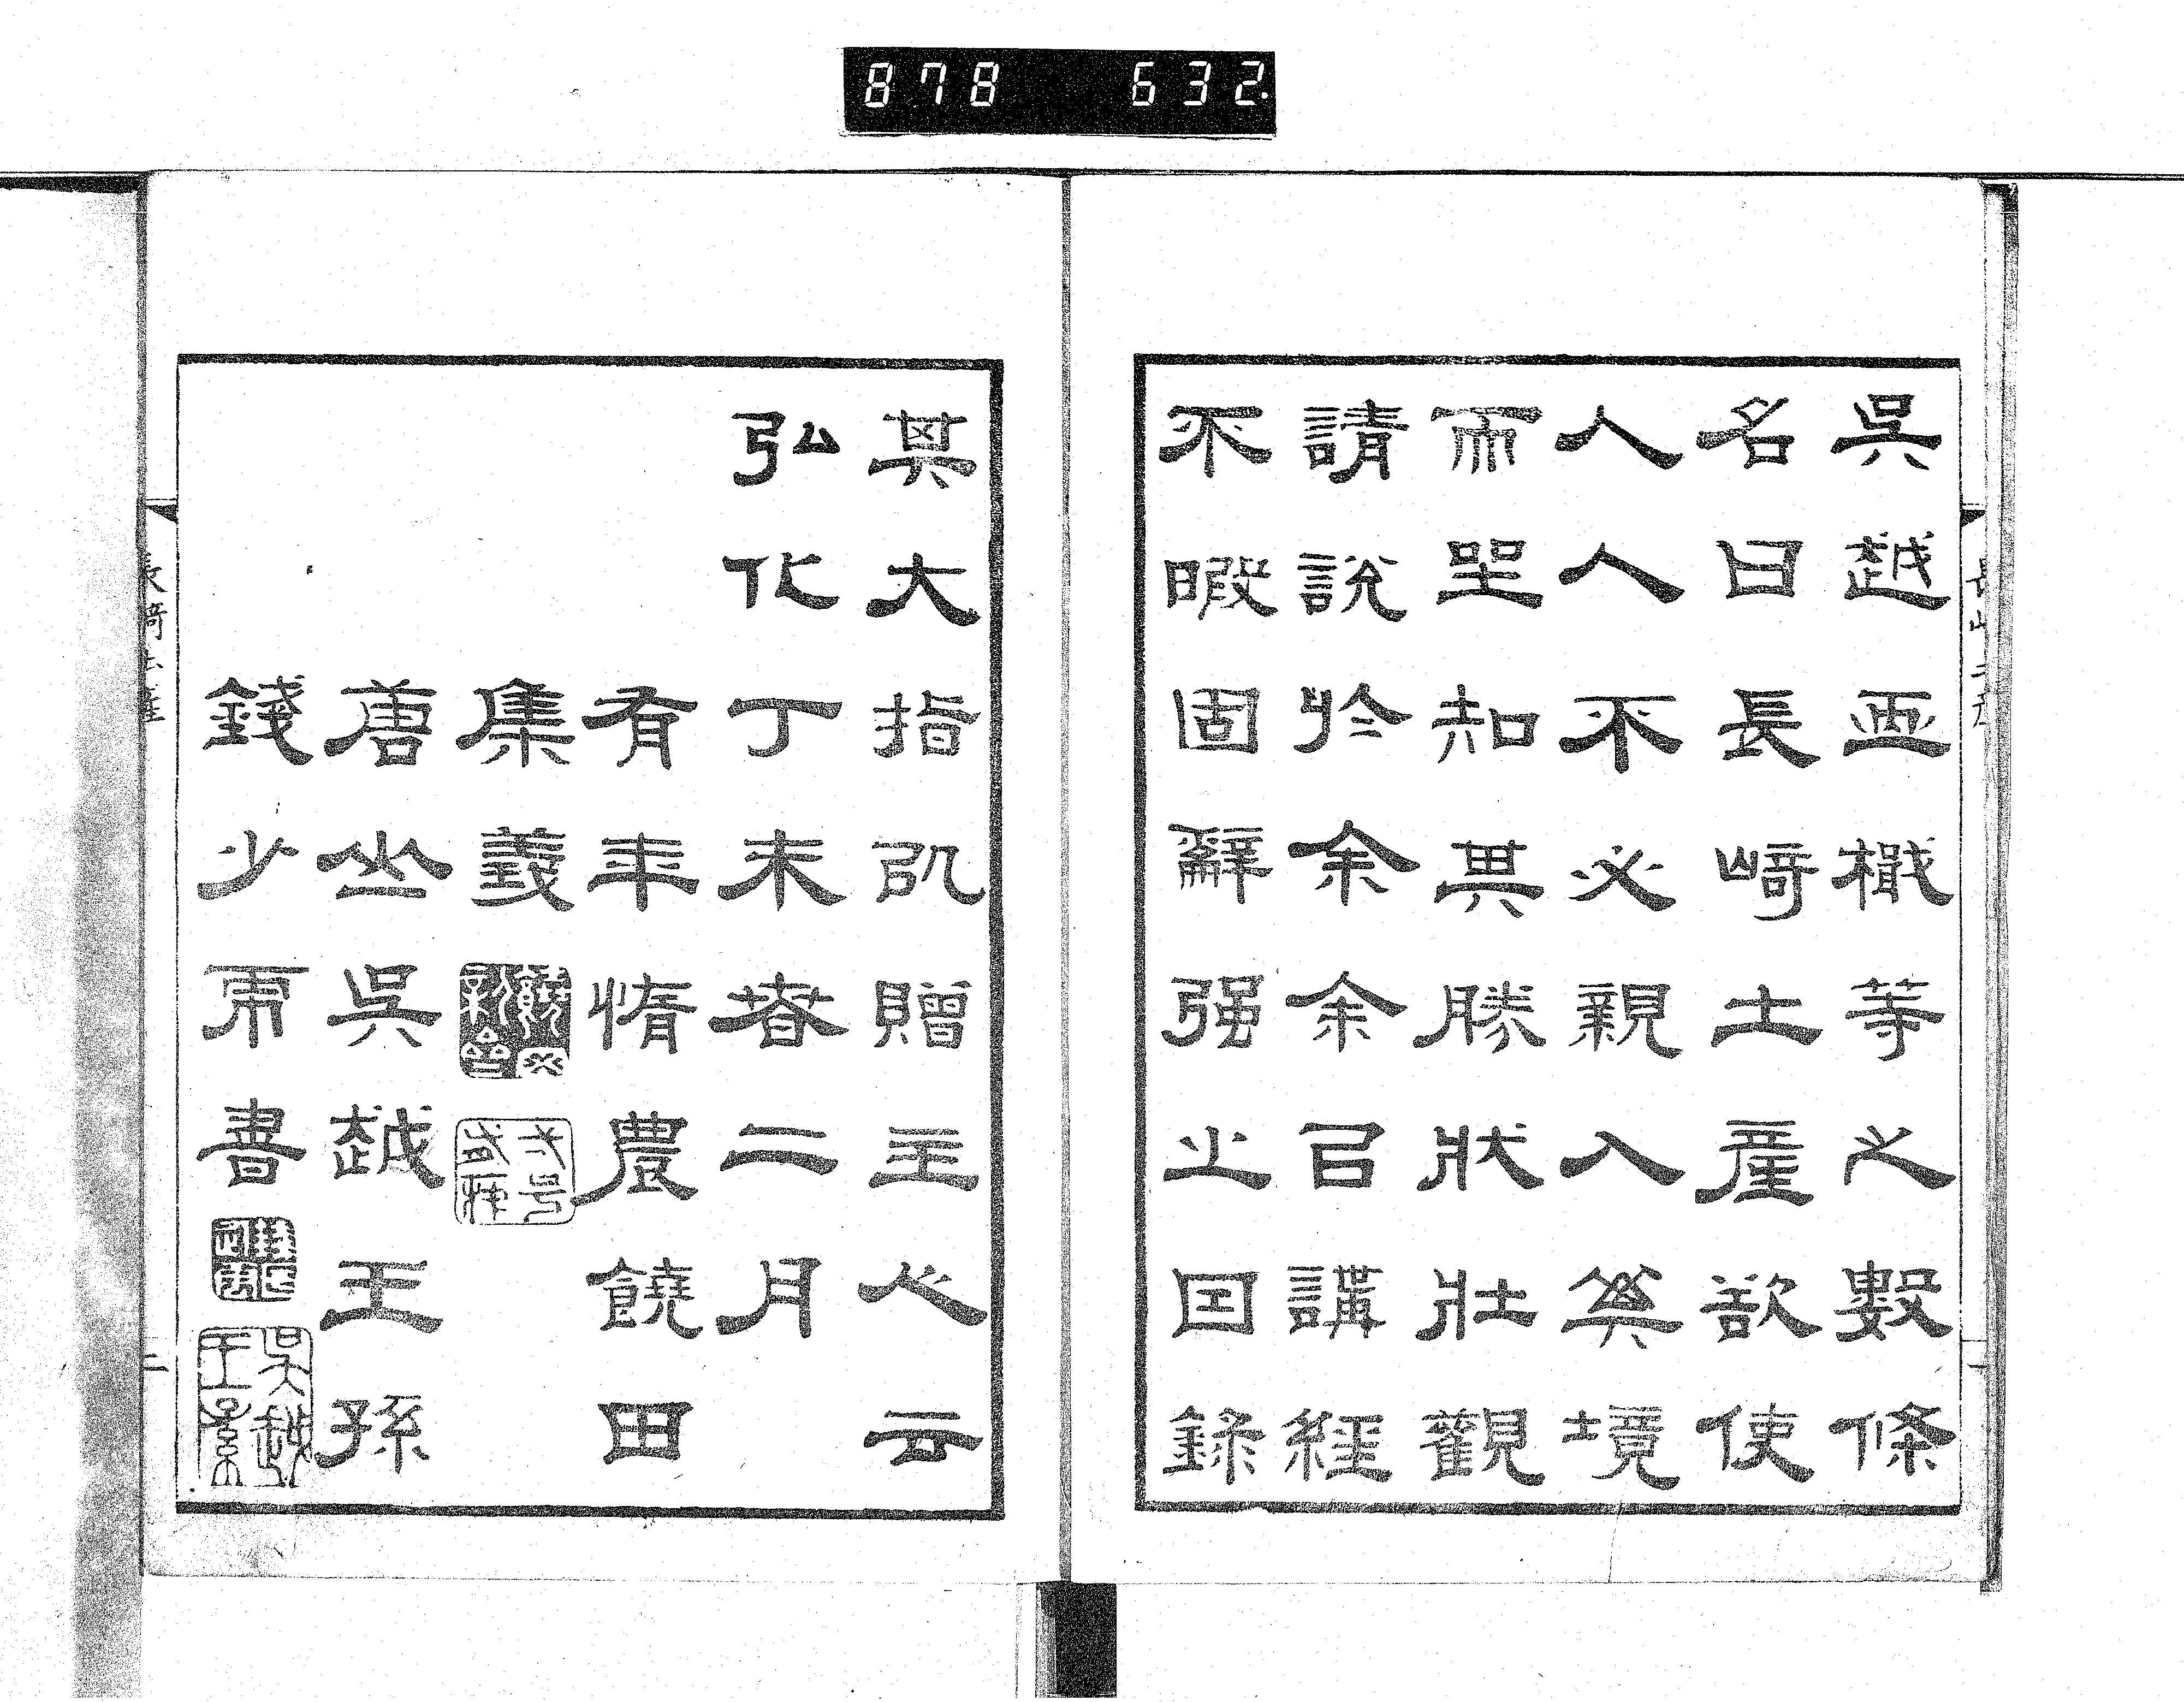 878 632.
吳越檝等之數條
名曰長崎土產欲使
人人不必親入其境
而坐知其勝狀壯觀
請說於余余㠯講經
不暇固辭强之因錄
其大指㕥贈主人云
弘化丁未春二月
有年惰農饒田
集義
唐山吳越王孫
錢少虎書
吳越王孫
長崎土產
二